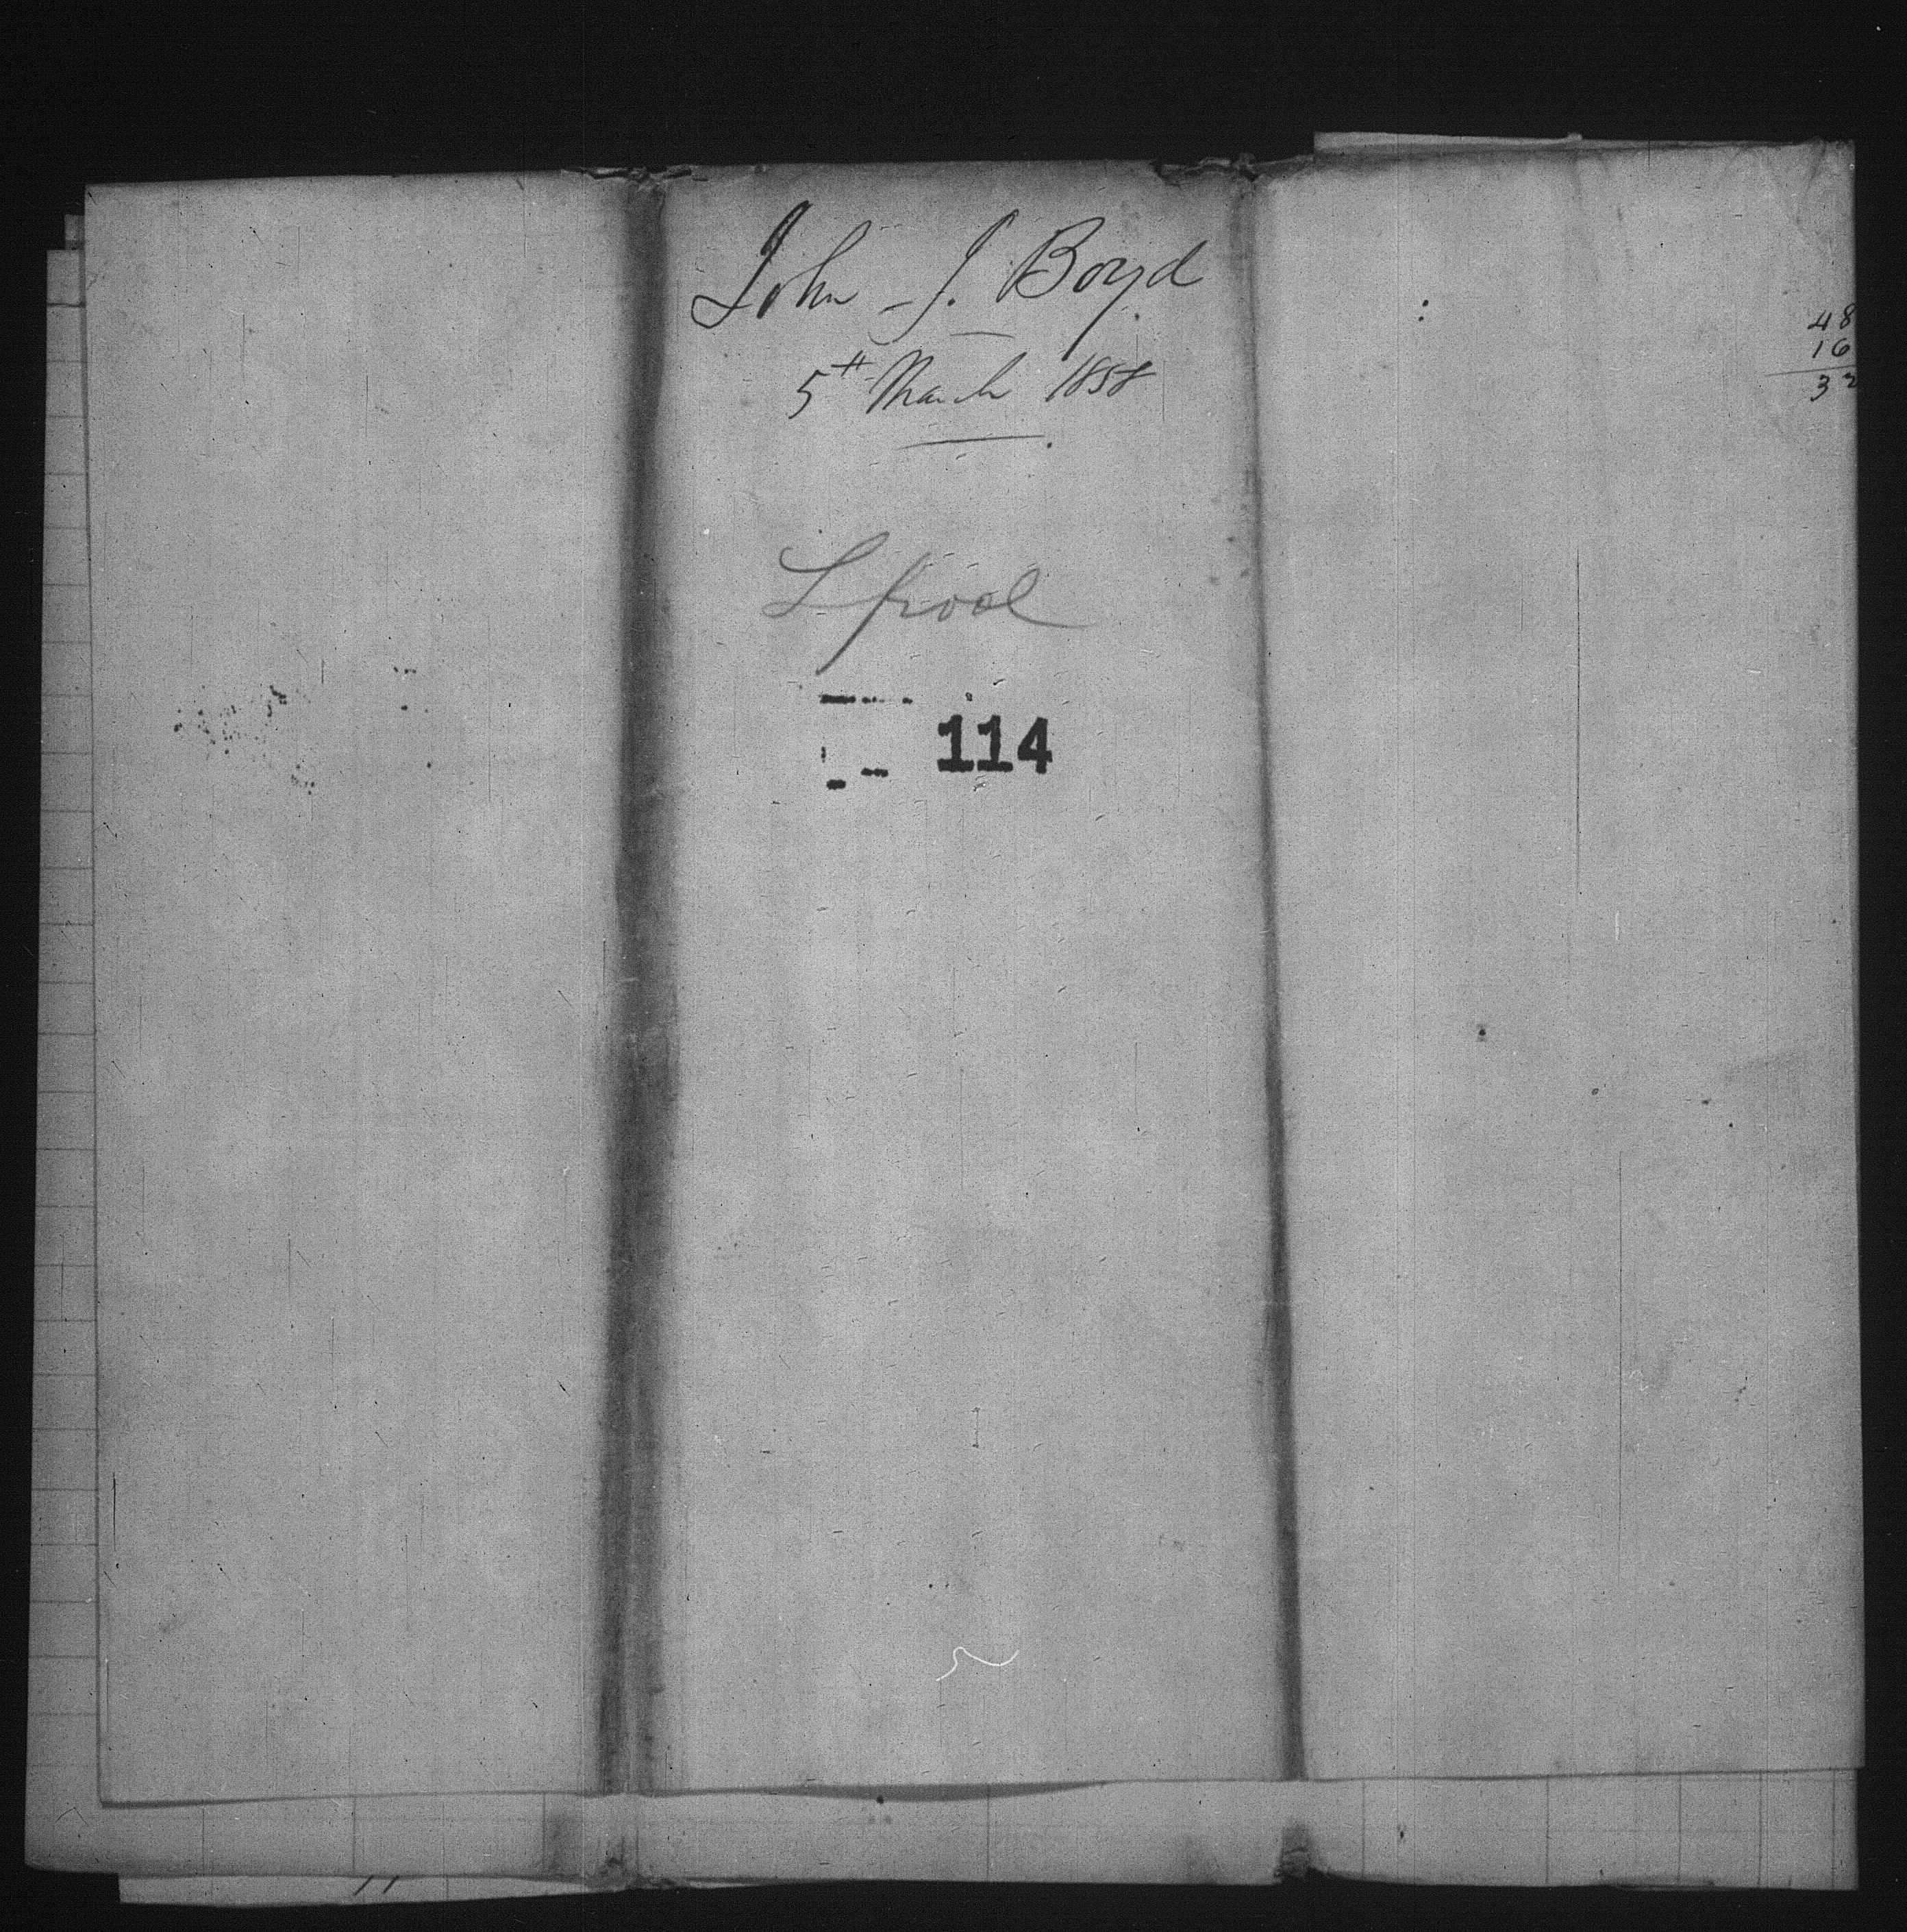 John J. Boyd
5th March 1858
Lpool
114
48
16
32